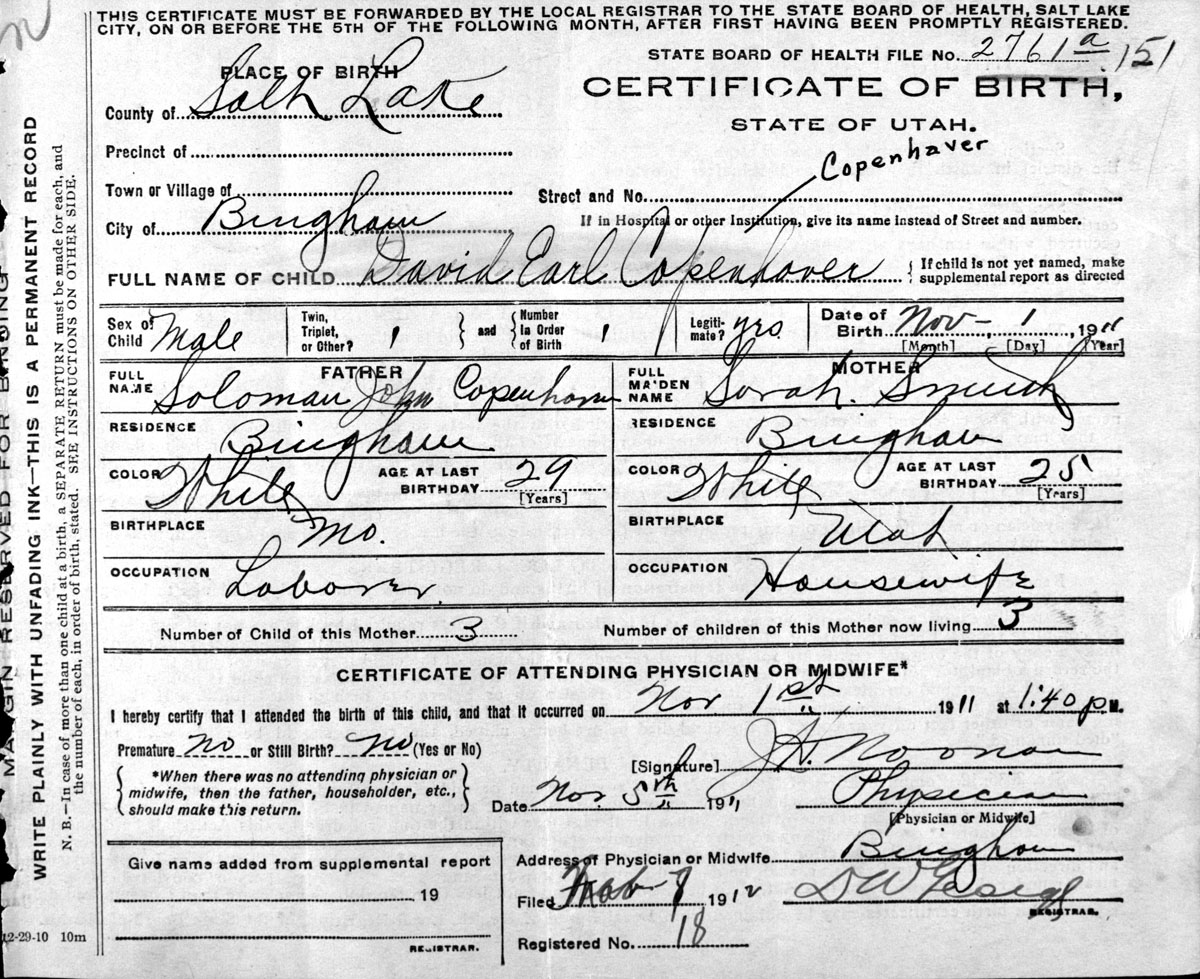 THIS CERTIFICATE MUST BE FORWARDED BY THE LOCAL REGISTRAR TO THE STATE BOARD OF HEALTH, SALT LAKE
CITY, ON OR BEFORE THE 5TH OF THE FOLLOWING MONTH, AFTER FIRST HAVING BEEN PROMPTLY REGISTERED.
STATE BOARD OF HEALTH FILE No. 2761a 151
PLACE OF BIRTH
CERTIFICATE OF BIRTH,
County of Salt Lake
STATE OF UTAH.
Precinct of
Copenhaver
Town or Village of
Street and No.
City of Bingham
If in Hospital or other Institution, give its name instead of Street and number.
FULL NAME OF CHILD David Earl Copenhaver
If child is not yet named, make
supplemental report as directed
Sex of Child Male
Twin, Triplet, or Other? 1 and Number In Order of Birth 1
Legiti-mate? yes
Date of Birth Nov - 1, 1911
[Month] [Day] [Year]
FATHER
FULL NAME Soloman John Copenhaver
MOTHER
FULL MAIDEN NAME Sarah Smith
RESIDENCE Bingham
RESIDENCE Bingham
COLOR White AGE AT LAST BIRTHDAY 29 [Years]
COLOR White AGE AT LAST BIRTHDAY 25 [Years]
BIRTHPLACE Mo.
BIRTHPLACE Utah
OCCUPATION Laborer
OCCUPATION Housewife
Number of Child of this Mother 3
Number of children of this Mother now living 3
CERTIFICATE OF ATTENDING PHYSICIAN OR MIDWIFE*
I hereby certify that I attended the birth of this child, and that it occurred on Nov 1st, 1911 at 1:40 p M.
Premature No or Still Birth? No (Yes or No)
[Signature] J.H. Noonan
*When there was no attending physician or
midwife, then the father, householder, etc.,
should make this return.
Date Nov 5th 1911
Physician
[Physician or Midwife]
Give name added from supplemental report
19
REGISTRAR.
Address of Physician or Midwife Bingham
Filed 8 1912
REGISTRAR.
Registered No. 18
12-29-10 10m
MARGIN RESERVED FOR BINDING
WRITE PLAINLY WITH UNFADING INK—THIS IS A PERMANENT RECORD
N. B.—In case of more than one child at a birth, a SEPARATE RETURN must be made for each, and
the number of each, in order of birth, stated. SEE INSTRUCTIONS ON OTHER SIDE.